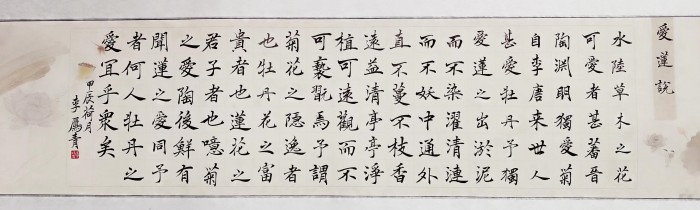 愛蓮說
水陸草木之花
可愛者甚蕃晉
陶淵明獨愛菊
自李唐来世人
甚愛牡丹予獨
愛蓮之出淤泥
而不染濯清漣
而不妖中通外
直不蔓不枝香
遠益清亭亭淨
植可遠觀而不
可褻翫焉予謂
菊花之隱逸者
也牡丹花之富
貴者也蓮花之
君子者也噫菊
之愛陶後鮮有
聞蓮之愛同予
者何人牡丹之
愛宜乎衆矣
甲辰荷月